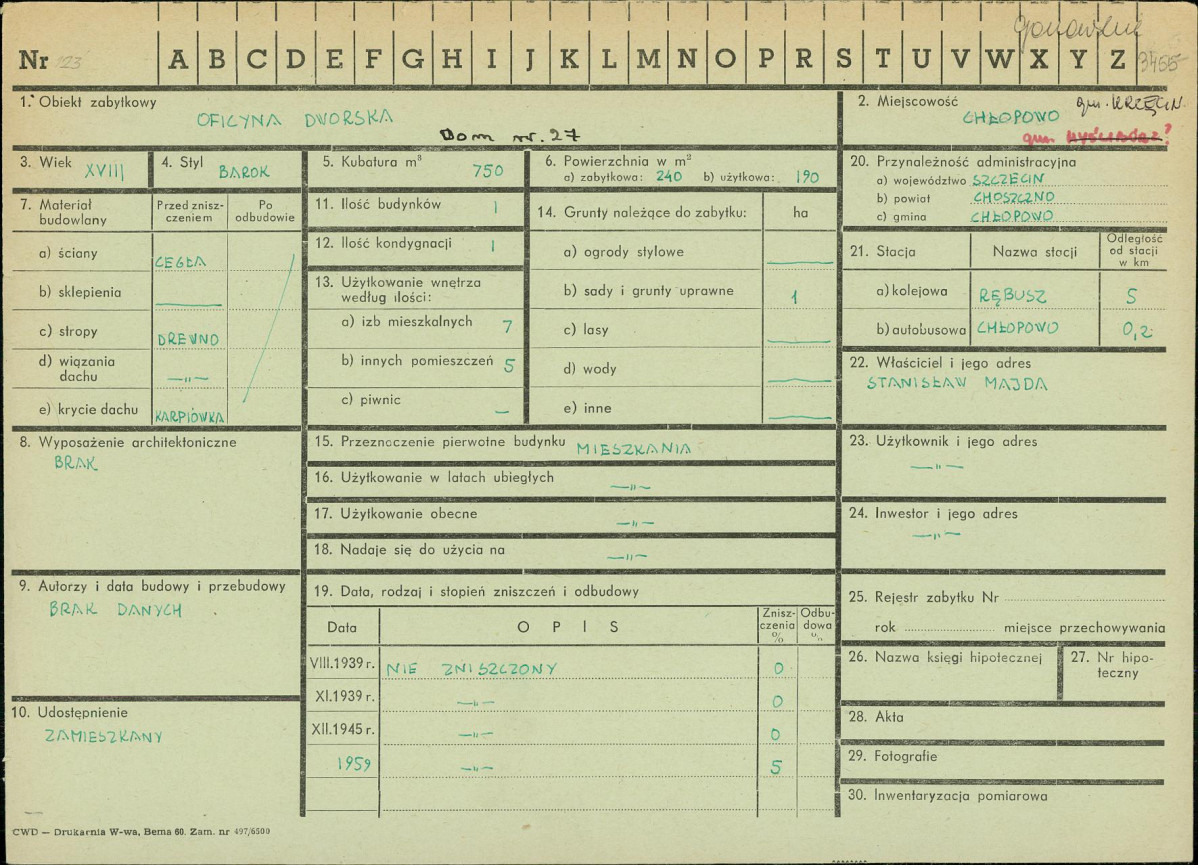 gorzowskie
Nr 123 A B C D E F G H I J K L M N O P R S T U V W X Y Z 3455
1. Obiekt zabytkowy
OFICYNA DWORSKA
Dom nr. 27
2. Miejscowość
CHŁOPOWO gm. KRZĘCIN.
gm. MYŚLIBÓRZ?
3. Wiek XVIII
4. Styl BAROK
5. Kubatura m³ 750
6. Powierzchnia w m²
a) zabytkowa: 240 b) użytkowa: 190
7. Materiał budowlany
Przed zniszczeniem
Po odbudowie
a) ściany CEGŁA
b) sklepienia —
c) stropy DREWNO
d) wiązania dachu —"—
e) krycie dachu KARPIÓWKA
8. Wyposażenie architektoniczne
BRAK
9. Autorzy i data budowy i przebudowy
BRAK DANYCH
10. Udostępnienie
ZAMIESZKANY
11. Ilość budynków 1
12. Ilość kondygnacji 1
13. Użytkowanie wnętrza według ilości:
a) izb mieszkalnych 7
b) innych pomieszczeń 5
c) piwnic —
14. Grunty należące do zabytku: ha
a) ogrody stylowe —
b) sady i grunty uprawne 1
c) lasy —
d) wody —
e) inne —
15. Przeznaczenie pierwotne budynku MIESZKANIA
16. Użytkowanie w latach ubiegłych —"—
17. Użytkowanie obecne —"—
18. Nadaje się do użycia na —"—
19. Data, rodzaj i stopień zniszczeń i odbudowy
Data OPIS Zniszczenia % Odbudowa %
VIII.1939 r. NIE ZNISZCZONY 0
XI.1939 r. —"— 0
XII.1945 r. —"— 0
1959 —"— 5
20. Przynależność administracyjna
a) województwo SZCZECIN
b) powiat CHOSZCZNO
c) gmina CHŁOPOWO
21. Stacja Nazwa stacji Odległość od stacji w km
a) kolejowa RĘBUSZ 5
b) autobusowa CHŁOPOWO 0,2
22. Właściciel i jego adres
STANISŁAW MAJDA
23. Użytkownik i jego adres
—"—
24. Inwestor i jego adres
—"—
25. Rejestr zabytku Nr
rok miejsce przechowywania
26. Nazwa księgi hipotecznej
27. Nr hipoteczny
28. Akta
29. Fotografie
30. Inwentaryzacja pomiarowa
CWD — Drukarnia W-wa, Bema 60. Zam. nr 497/6500